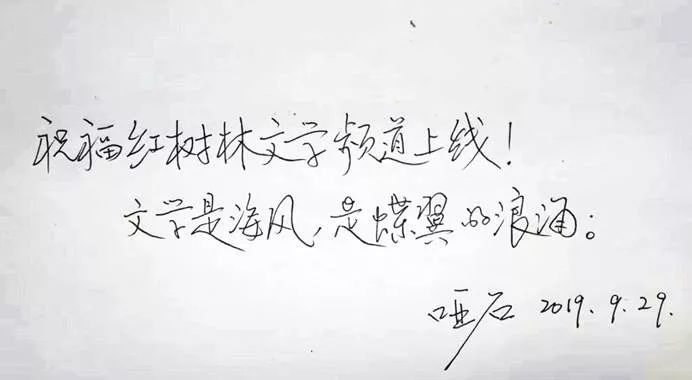 祝福红树林文学频道上线！
文学是海风，是蝶翼的浪涌。
哑石 2019.9.29.